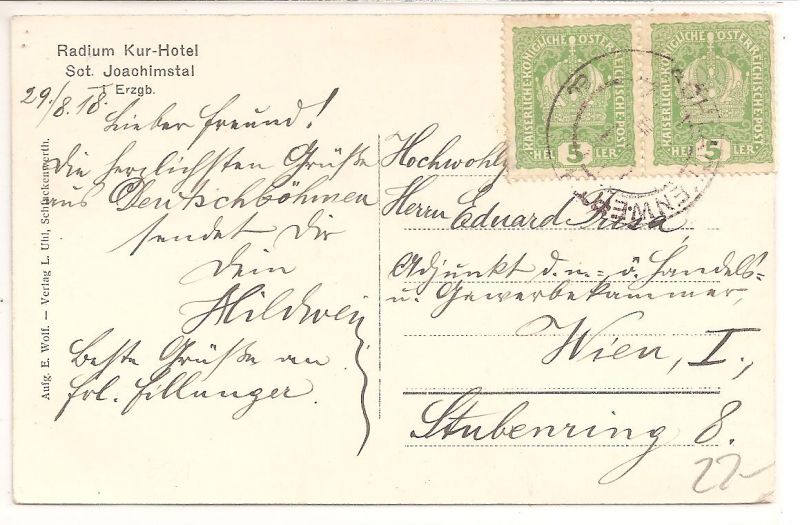 Radium Kur-Hotel
Sct. Joachimstal
i Erzgb.
29./8. 18.
Lieber Freund!
Die herzlichsten Grüße
aus Deutschböhmen
sendet Dir
Dein
Beste Grüße an
Frl.
Aufg. E. Wolf. — Verlag L. Uhl, Schlackenwerth.
KAISERLICHE KÖNIGLICHE ÖSTERREICHISCHE POST
5
HELLER
KAISERLICHE KÖNIGLICHE ÖSTERREICHISCHE POST
5
HELLER
Hochwohlg
Herrn Eduard
Adjunkt d. n.- ö. Handels-
u. Gewerbekammer,
Wien, I.,
Stubenring 8.
22-